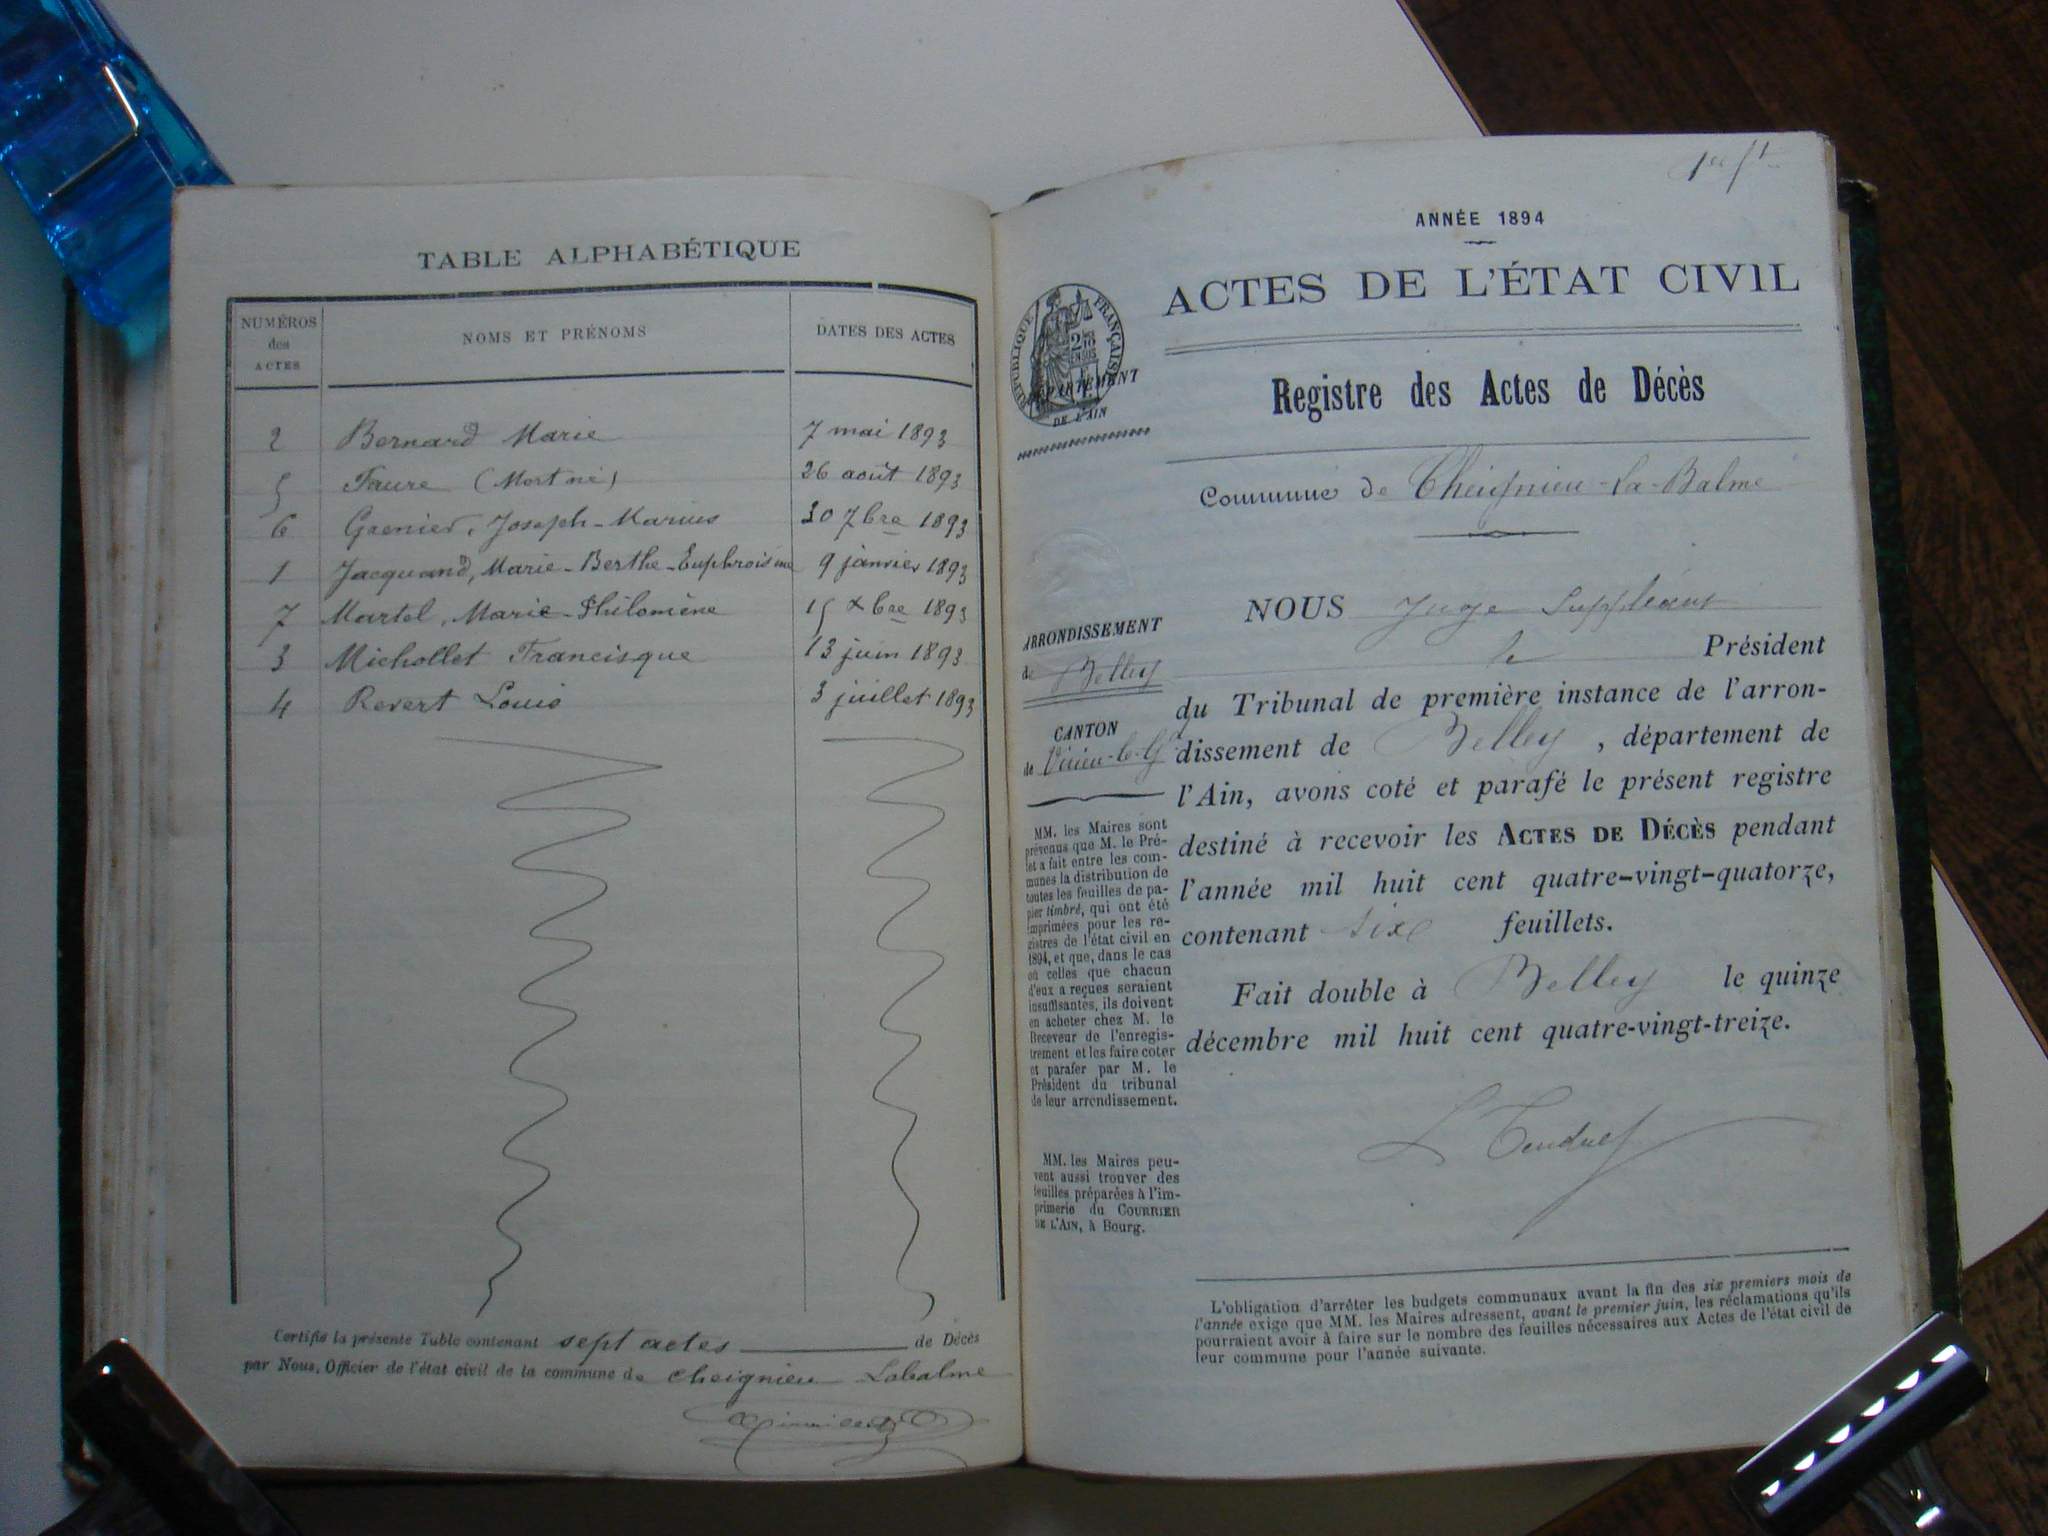 TABLE ALPHABÉTIQUE
NUMÉROS des ACTES NOMS ET PRÉNOMS DATES DES ACTES
2 Bernard Marie 7 mai 1893
5 Faure (Mort né) 26 août 1893
6 Grenier, Joseph-Marius 30 7bre 1893
1 Jacquand, Marie-Berthe-Euphroisine 9 janvier 1893
7 Martel, Marie-Philomène 15 xbre 1893
3 Michollet Francisque 13 juin 1893
4 Revert Louis 3 juillet 1893
Certifié la présente Table contenant sept actes de Décès
par Nous, Officier de l'état civil de la commune de Cheignieu Labalme
ANNÉE 1894
ACTES DE L'ÉTAT CIVIL
RÉPUBLIQUE FRANÇAISE
DÉPARTEMENT
DE L'AIN
Registre des Actes de Décès
Commune de Cheignieu-La-Balme
ARRONDISSEMENT
de Belley
CANTON
de Virieu-le-Gd
MM. les Maires sont
prévenus que M. le Pré-
fet a fait entre les com-
munes la distribution de
toutes les feuilles de pa-
pier timbré, qui ont été
imprimées pour les re-
gistres de l'état civil en
1894, et que, dans le cas
où celles que chacun
d'eux a reçues seraient
insuffisantes, ils doivent
en acheter chez M. le
Receveur de l'enregis-
trement et les faire coter
et parafer par M. le
Président du tribunal
de leur arrondissement.
MM. les Maires peu-
vent aussi trouver des
feuilles préparées à l'im-
primerie du COURRIER
DE L'AIN, à Bourg.
NOUS Juge Suppléant
le Président
du Tribunal de première instance de l'arron-
dissement de Belley, département de
l'Ain, avons coté et parafé le présent registre
destiné à recevoir les ACTES DE DÉCÈS pendant
l'année mil huit cent quatre-vingt-quatorze,
contenant six feuillets.
Fait double à Belley le quinze
décembre mil huit cent quatre-vingt-treize.
L'obligation d'arrêter les budgets communaux avant la fin des six premiers mois de
l'année exige que MM. les Maires adressent, avant le premier juin, les réclamations qu'ils
pourraient avoir à faire sur le nombre des feuilles nécessaires aux Actes de l'état civil de
leur commune pour l'année suivante.